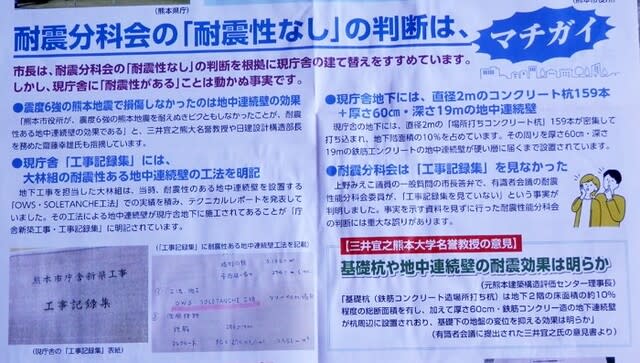 (熊本県庁)
耐震分科会の「耐震性なし」の判断は、マチガイ
市長は、耐震分科会の「耐震性なし」の判断を根拠に現庁舎の建て替えをすすめています。
しかし、現庁舎に「耐震性がある」ことは動かぬ事実です。
●震度6強の熊本地震で損傷しなかったのは地中連続壁の効果
「熊本市役所が、震度6強の熊本地震を耐えぬきビクともしなかったことが、耐震
性ある地中連続壁の効果である」と、三井宜之熊大名誉教授や日建設計構造部長
を務めた齋藤幸雄氏も指摘しています。
●現庁舎「工事記録集」には、
大林組の耐震性ある地中連続壁の工法を明記
地下工事を担当した大林組は、当時、耐震性のある地中連続壁を設置する
「OWS・SOLETANCHE工法」での実績を積み、テクニカルレポートを発表して
いました。その工法による地中連続壁が現庁舎地下に施工されてあることが「庁
舎新築工事・工事記録集」に明記されています。
熊本市庁舎新築工事
工事記録集
(現庁舎の「工事記録集」表紙)
(「工事記録集」に耐震性ある地中連続壁工法を記載)
OWS SOLETANCHE工法
●現庁舎地下には、直径2mのコンクリート杭159本
+厚さ60㎝・深さ19mの地中連続壁
現庁舎の地下には、直径2mの「場所打ちコンクリート杭」159本が密集して
打ち込まれ、地下階面積の10%を占めています。その周りを厚さ60㎝・深さ
19mの鉄筋コンクリートの地中連続壁が硬い層に届くまで設置されています。
●耐震分科会は「工事記録集」を見なかった
上野みえこ議員の一般質問の市長答弁で、有識者会議の耐震
性能分科会委員が、「工事記録集を見ていない」という事実が
判明しました。事実を示す資料を見ずに行った耐震性能分科会
の判断には重大な誤りがあります。
【三井宜之熊本大学名誉教授の意見】
基礎杭や地中連続壁の耐震効果は明らか
(元熊本建築構造評価センター理事長)
「基礎杭(鉄筋コンクリート造場所打ち杭)は地下2階の床面積の約10%
程度の総断面積を有し、加えて厚さ60㎝・鉄筋コンクリート造の地下連続壁
が杭周辺に設置されおり、基礎下の地盤の変位を抑える効果は明らか」
(有識者会議に提出された三井宜之氏の意見書より)